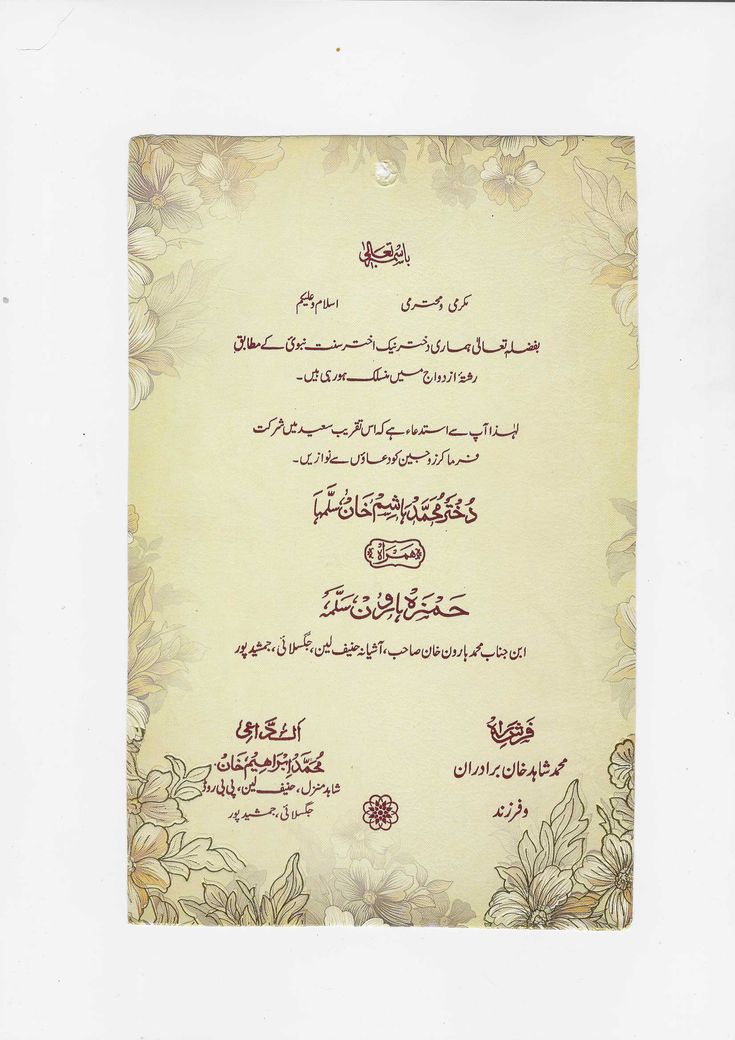 باسمہ تعالیٰ
مکرمی ومحترمی اسلام وعلیکم
بفضلہٖ تعالیٰ ہماری دختر نیک اختر سنت نبویؐ کے مطابق
رشتۂ ازدواج میں منسلک ہورہی ہیں۔
لہٰذا آپ سے استدعاء ہے کہ اس تقریب سعید میں شرکت
فرما کر زوجین کو دعاؤں سے نوازیں۔
دُختر محمد ہاشم خان سلّمہا
ہمراہ
حمزہ ہارون سلّمہٗ
ابن جناب محمد ہارون خان صاحب، آشیانہ حنیف لین، جگسلائی، جمشید پور
فرش راہ
محمد شاہد خان برادران
و فرزند
الدّاعی
محمد ابراہیم خان
شاہد منزل، حنیف لین، پی پی روڈ
جگسلائی، جمشید پور